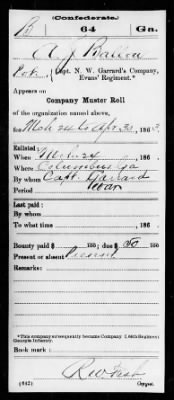 (Confederate.)
B 64 Ga.
A J Ballew
Pvt., Capt. N. W. Garrard's Company, Evans' Regiment.*
Appears on
Company Muster Roll
of the organization named above,
for Mch 24 to Apr 30, 1863.
Enlisted:
When Mch 24, 186
Where Columbus Ga
By whom Capt. Garrard
Period War
Last paid:
By whom
To what time , 186 .
Bounty paid $ 100; due $ 50 100
Present or absent Present
Remarks:
*This company subsequently became Company , 64th Regiment Georgia Infantry.
Book mark:
(642) Copyist.